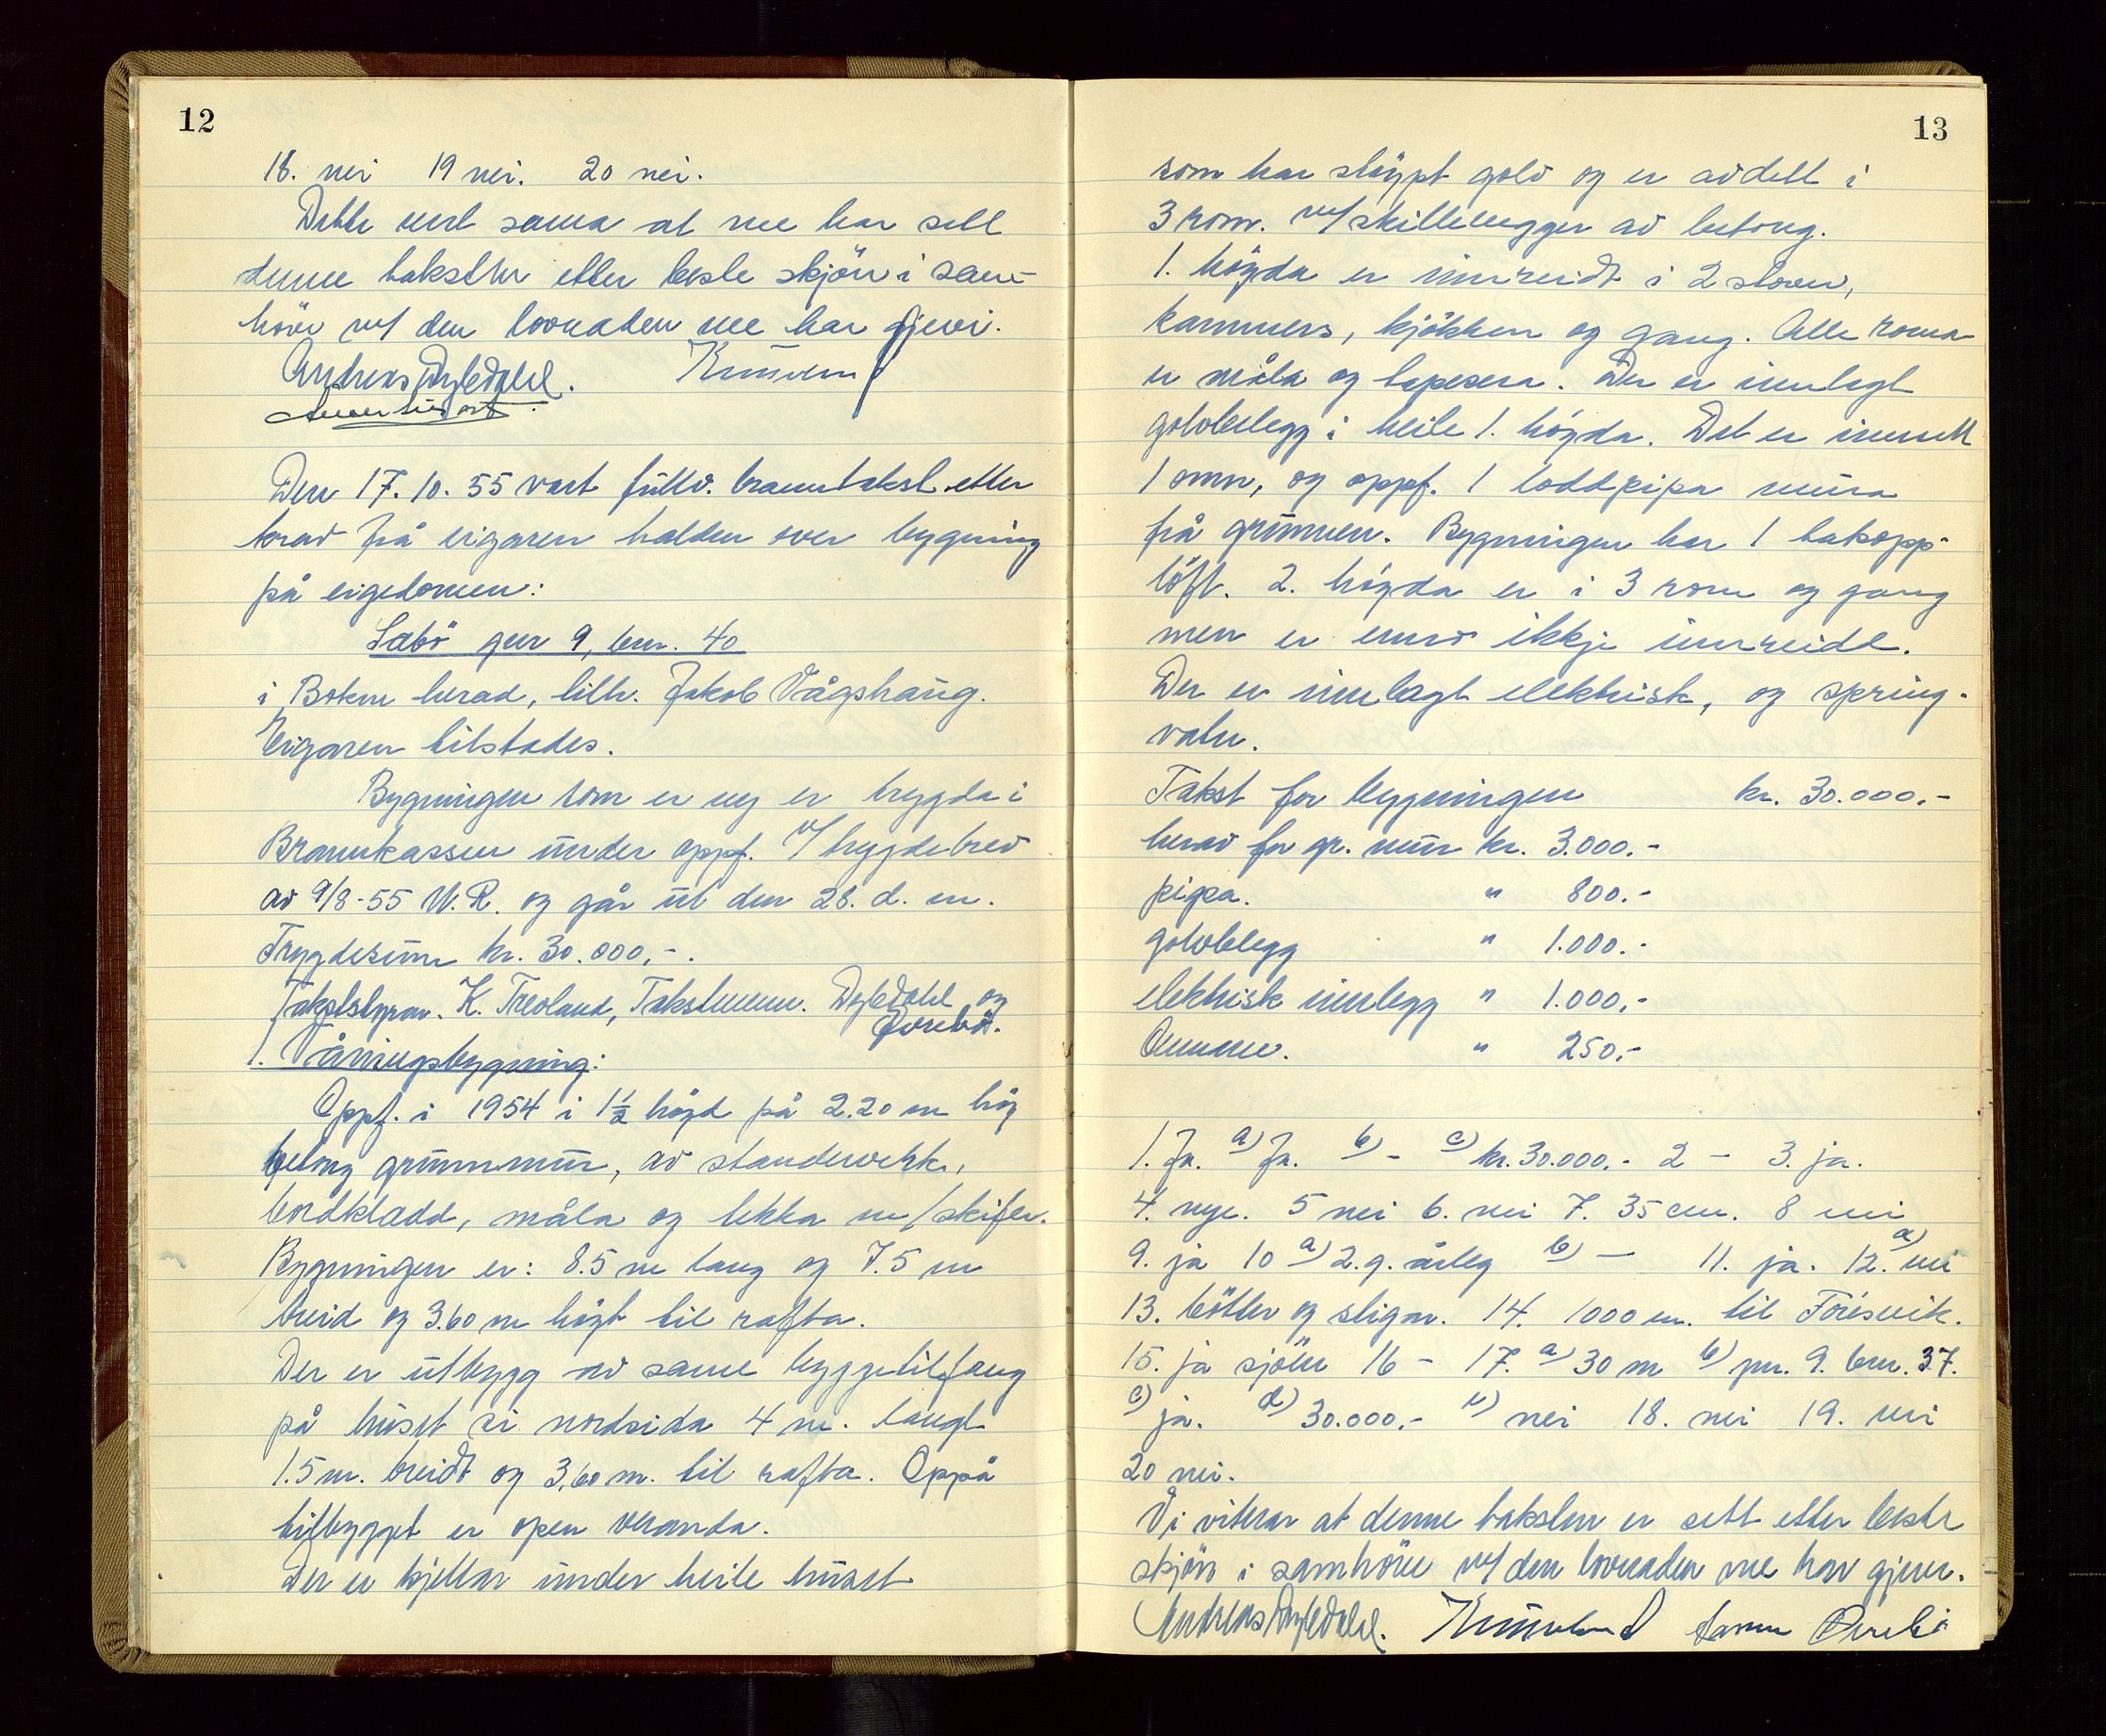 12
18. nei 19 nei. 20 nei.
Dette vert sanna at me har sett
denne taksten etter beste skjön i sam-
höve m/ den lovnaden me har gjevi.
Andreas Dybdahl.
Den 17.10.55 vart fullv. branntakst etter
krav frå eigaren halden over bygning
på eigedomen:
Sæbö gnr 9, bnr. 40
i Bokn herad, tilh. Jakob Vågshaug.
Eigaren tilstades.
Bygningen som er ny er trygda i
Brannkassen under oppf. v/ trygdebrev
av 9/8-55 W.R. og går ut den 28. d. m.
Trygdesum kr. 30.000,-.
Takststyrar. K. Treoland, Takstmenn. Dybdahl og
Øvrebö.
1. Våningsbygning:
Oppf. i 1954 i 1½ högd på 2.20 m hög
betong grunnmur, av standerverk,
bordkledd, måla og tekka m/skifer.
Bygningen er: 8.5 m lang og 7.5 m
breid og 3.60 m högt til rafta.
Der er utbygg av same byggetilfang
på huset si nordsida 4 m. langt
1.5 m. breidt og 3,60 m. til rafta. Oppå
tilbygget er open veranda.
Der er kjellar under heile huset
13
som har stöypt golv og er avdelt i
3 rom. m/skillevegger av betong.
1. högda er innreidt i 2 stover,
kammers, kjökken og gang. Alle roma
er måla og tapesera. Der er innlagt
golvbelegg i heile 1. högda. Det er innsett
1 omn, og oppf. 1 loddpipa mura
frå grunnen. Bygningen har 1 takopp-
löft. 2. högda er i 3 rom og gang
men er ennå ikkje innreidt.
Der er innlagt elektrisk, og spring-
vatn.
Takst for bygningen kr. 30.000.-
herav for gr. mur kr. 3.000.-
pipa. " 800.-
golvbelegg " 1.000.-
elektrisk innlegg " 1.000,-
Omnane. " 250,-
1. Ja. a) Ja. b) - c) kr. 30.000.- 2 - 3. ja.
4. nye. 5 nei 6. nei 7. 35 cm. 8 nei
9. ja 10 a) 2.g. årleg b) - 11. ja. 12. a) nei
13. bötter og stigar. 14. 1000 m. til Föresvik.
15. ja sjöen 16 - 17. a) 30 m b) gnr. 9. bnr. 37.
c) ja. d) 30.000,- e) nei 18. nei 19. nei
20 nei.
Vi vitnar at denne taksten er sett etter beste
skjön i samhöve m/ den lovnaden me har gjeve.
Andreas Dybdahl.